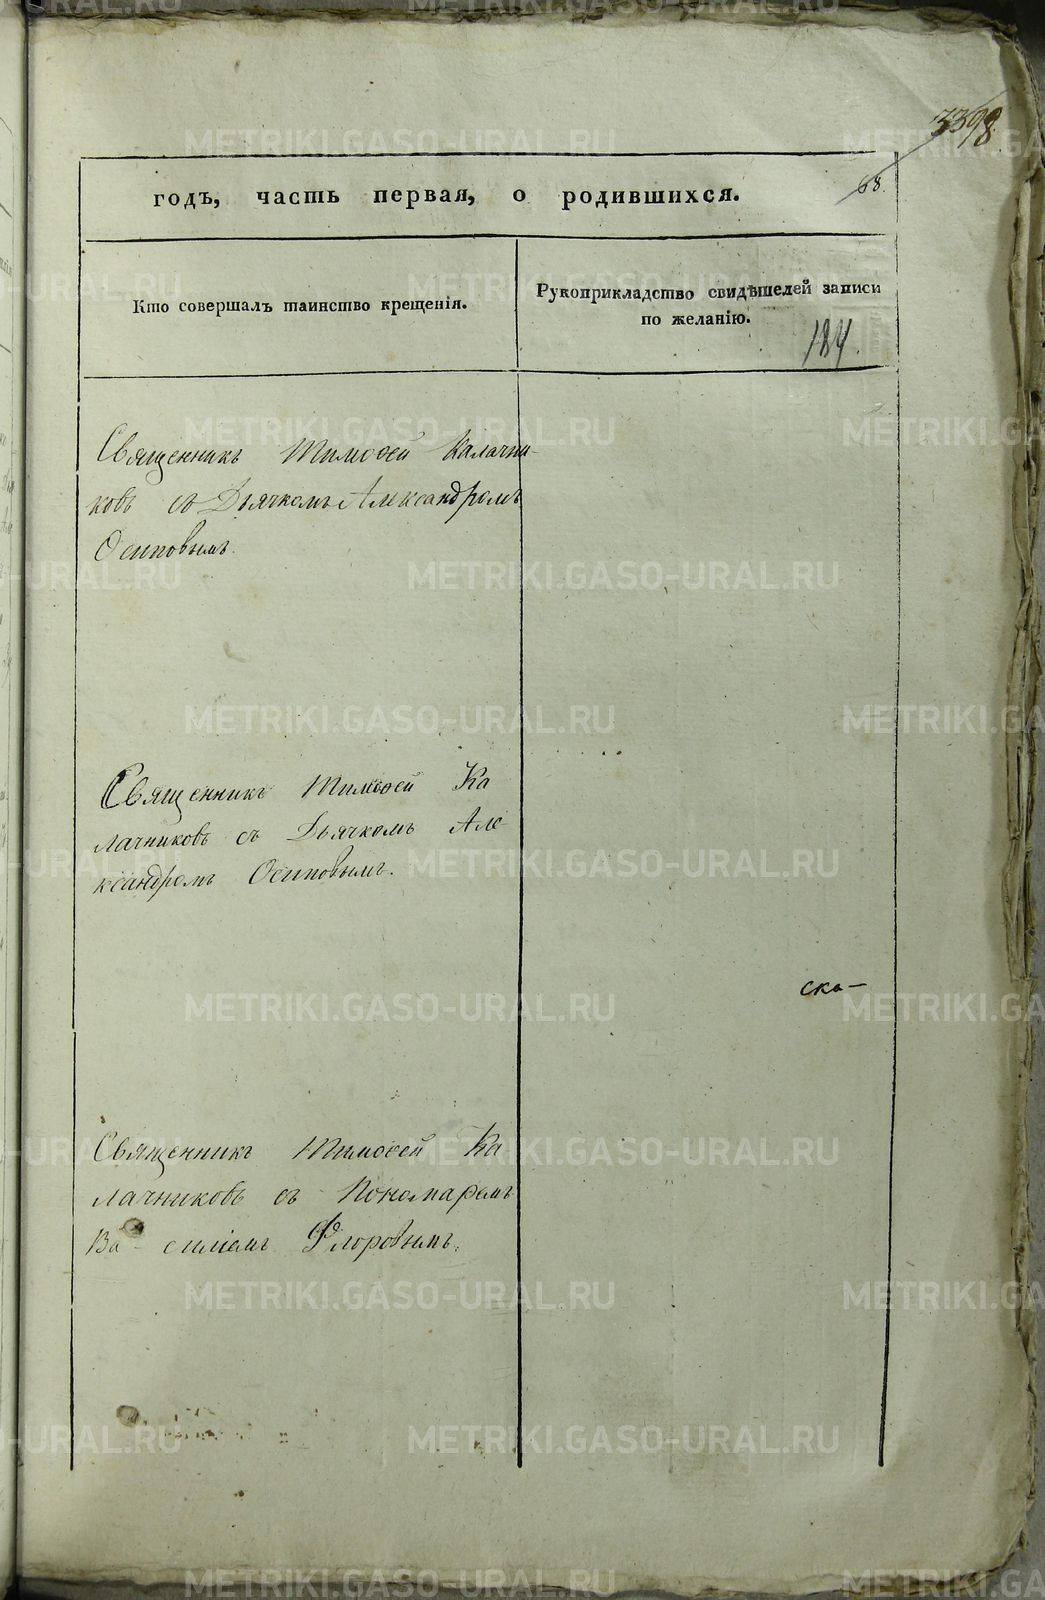 3398
68.
годъ, часть первая, о родившихся.
Кто совершалъ таинство крещенія.
Рукоприкладство свидѣтелей записи
по желанію.
184.
Священникъ Тимоѳей Калачни-
ковъ съ Дьячкомъ Александромъ
Осиповымъ.
Священникъ Тимоѳей Ка
лачниковъ съ Дьячкомъ Але-
ксандромъ Осиповымъ.
ска-
Священникъ Тимоѳей Ка
лачниковъ съ Пономаремъ
Ва- силіемъ Флоровымъ.
METRIKI.GASO-URAL.RU